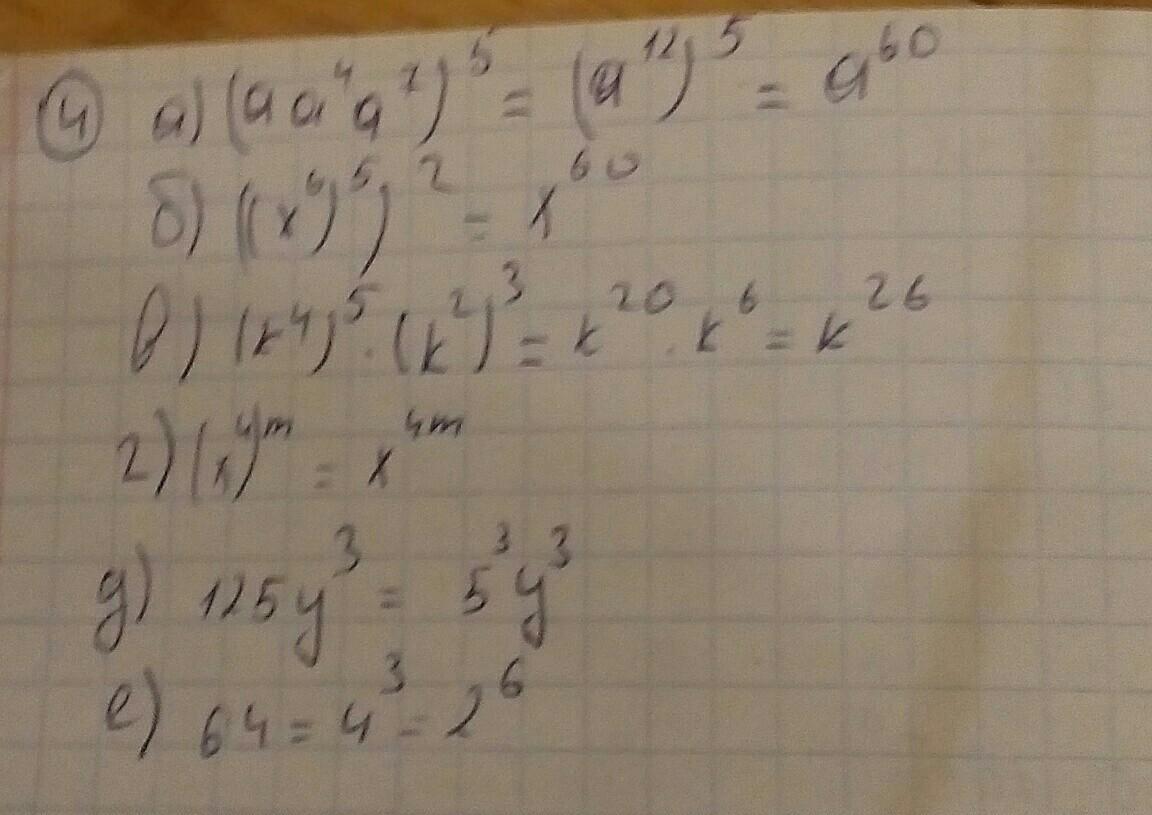 ④ а) (a a⁴ a⁷)⁵ = (a¹²)⁵ = a⁶⁰
б) ((x⁶)⁵)² = x⁶⁰
в) (k⁴)⁵ · (k²)³ = k²⁰ · k⁶ = k²⁶
г) (x⁴)ᵐ = x⁴ᵐ
д) 125y³ = 5³y³
е) 64 = 4³ = 2⁶